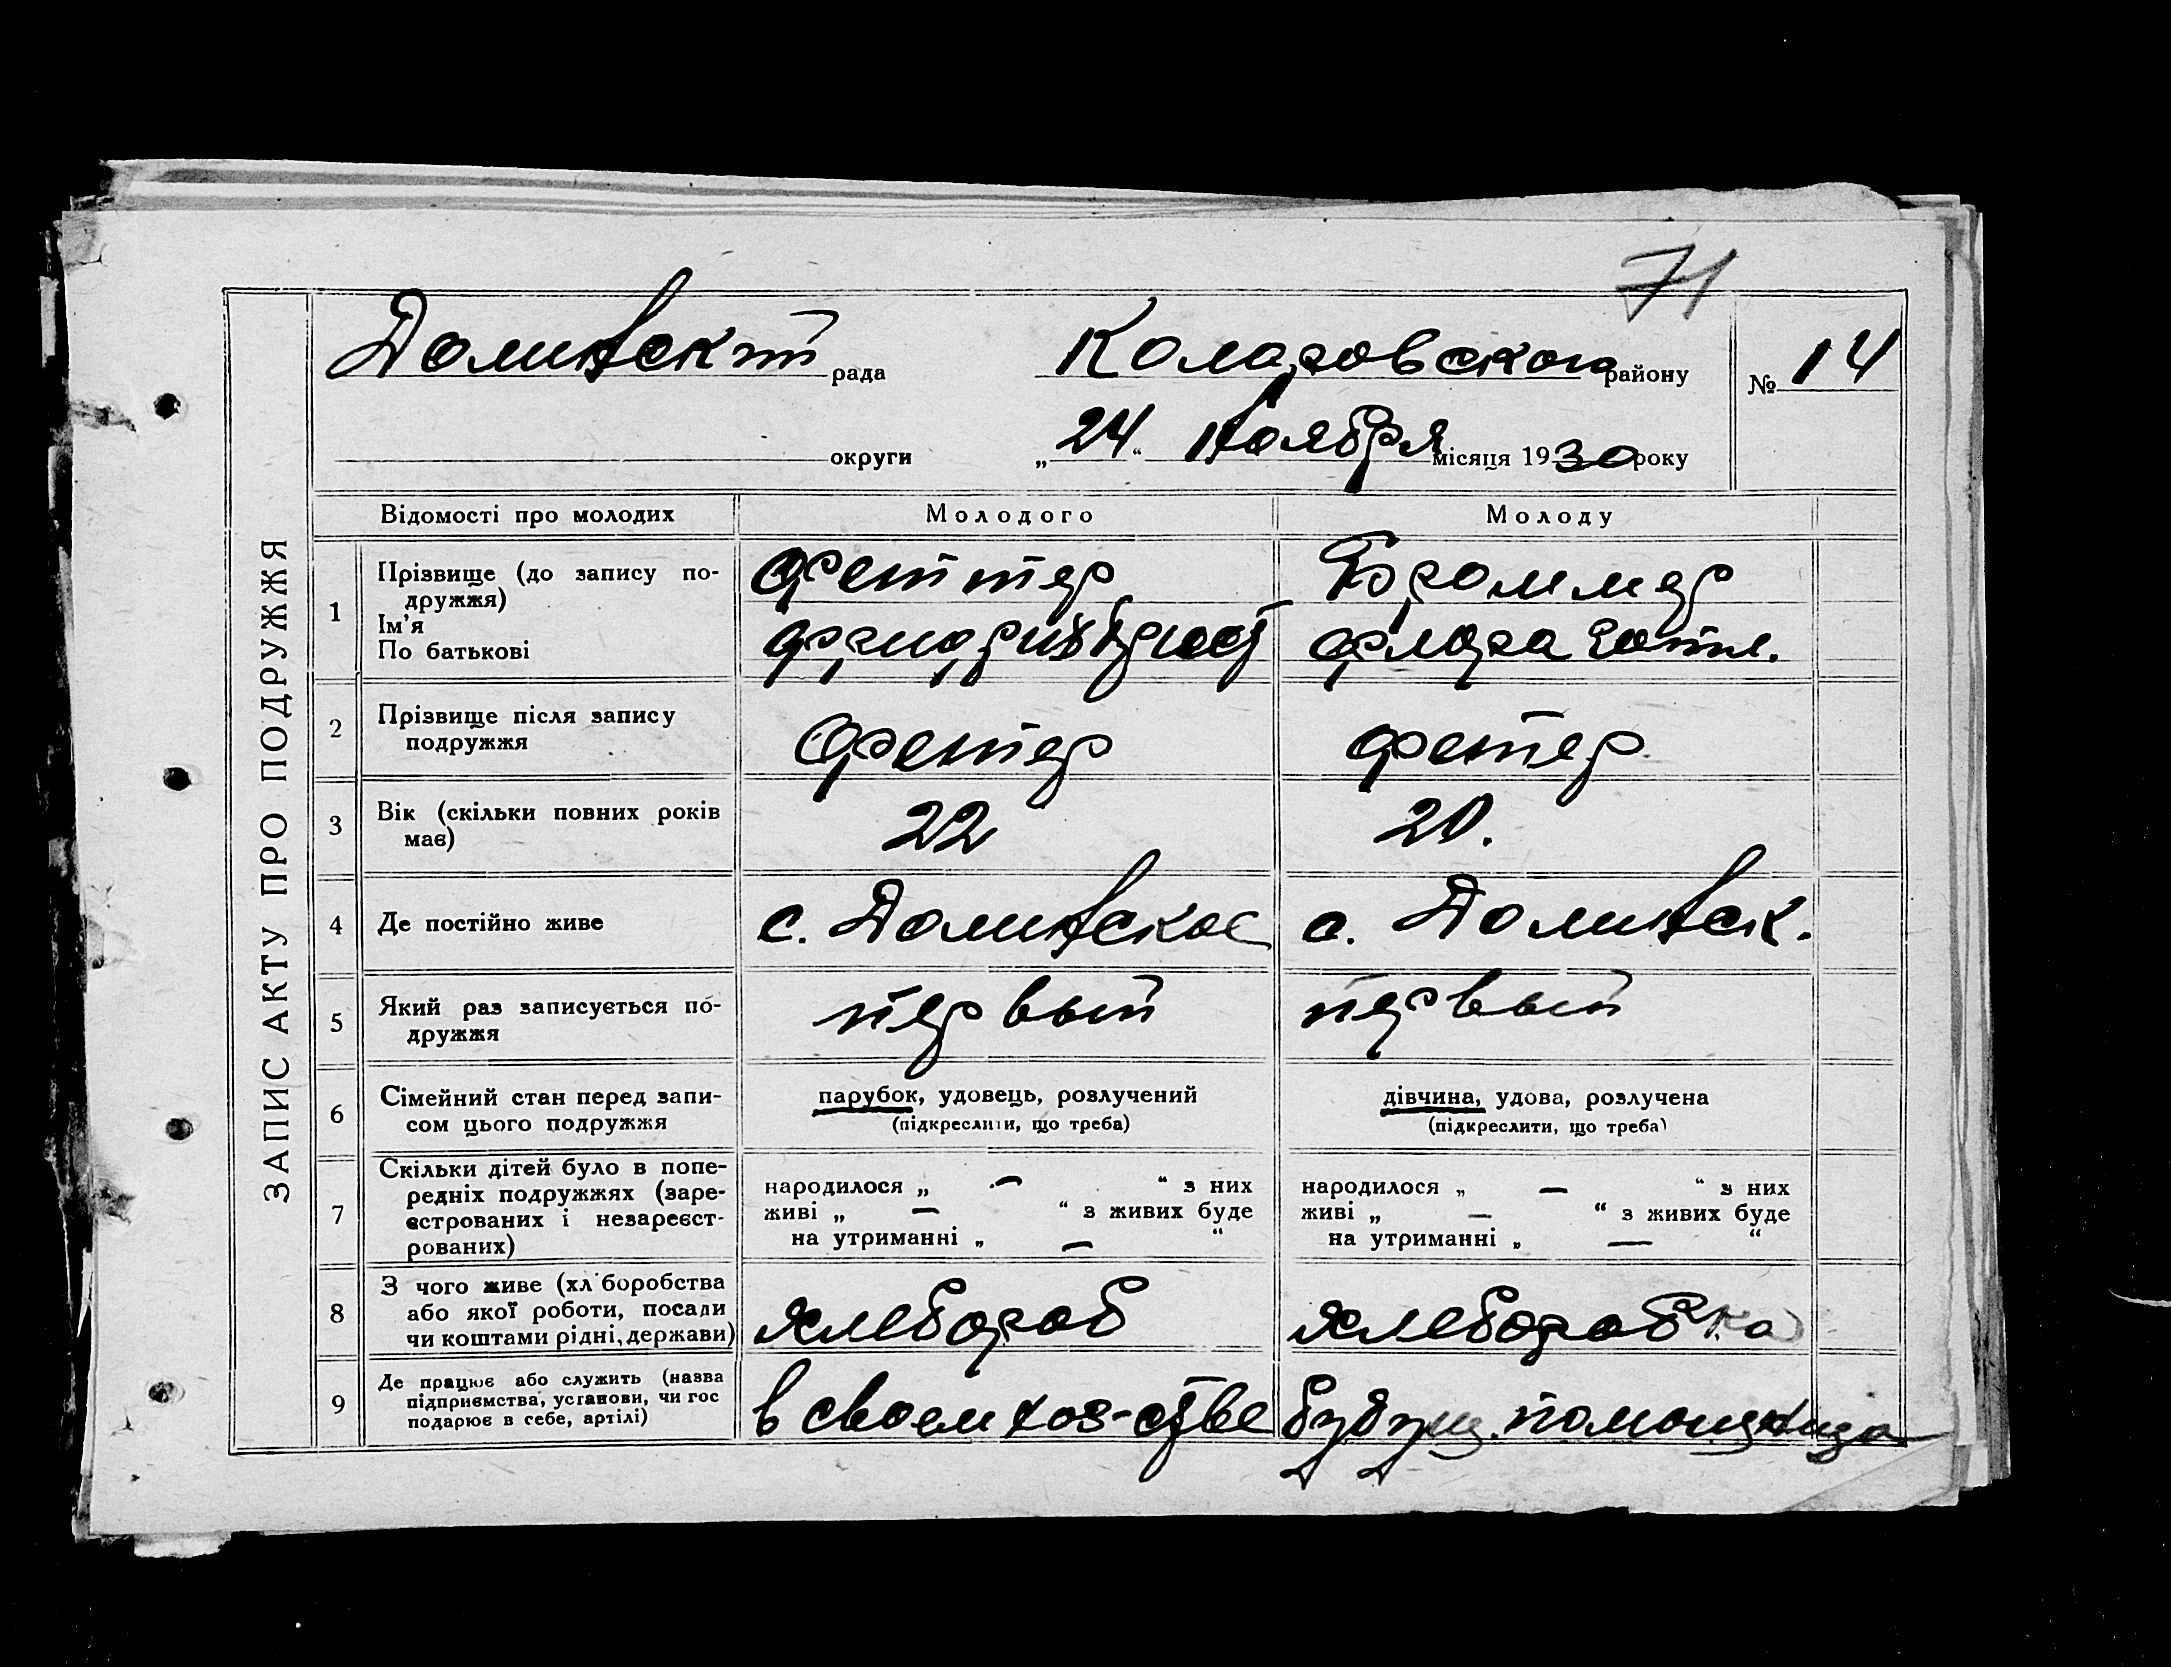 71
Долинский рада Коларовского району № 14
округи „24“ Ноября місяця 1930 року
ЗАПИС АКТУ ПРО ПОДРУЖЖЯ
Відомості про молодих Молодого Молоду
1 Прізвище (до запису по-
дружжя)
Ім’я
По батькові
Феттер
Фридрих Христ
Броммер
Флора Готл.
2 Прізвище після запису
подружжя
Фетер
Фетер
3 Вік (скільки повних років
має)
22
20.
4 Де постійно живе
с. Долинское
с. Долинск.
5 Який раз записується по-
дружжя
первый
первый
6 Сімейний стан перед запи-
сом цього подружжя
парубок, удовець, розлучений
(підкреслити, що треба)
дівчина, удова, розлучена
(підкреслити, що треба)
7 Скільки дітей було в попе-
редніх подружжях (заре-
єстрованих і незареєст-
рованих)
народилося „ — “ з них
живі „ — “ з живих буде
на утриманні „ — “
народилося „ — “ з них
живі „ — “ з живих буде
на утриманні „ — “
8 З чого живе (хліборобства
або якої роботи, посади
чи коштами рідні, держави)
хлебороб
хлеборобка
9 Де працює або служить (назва
підприємства, установи, чи гос
подарює в себе, артілі)
в своем хоз-стве
будущ. помощница